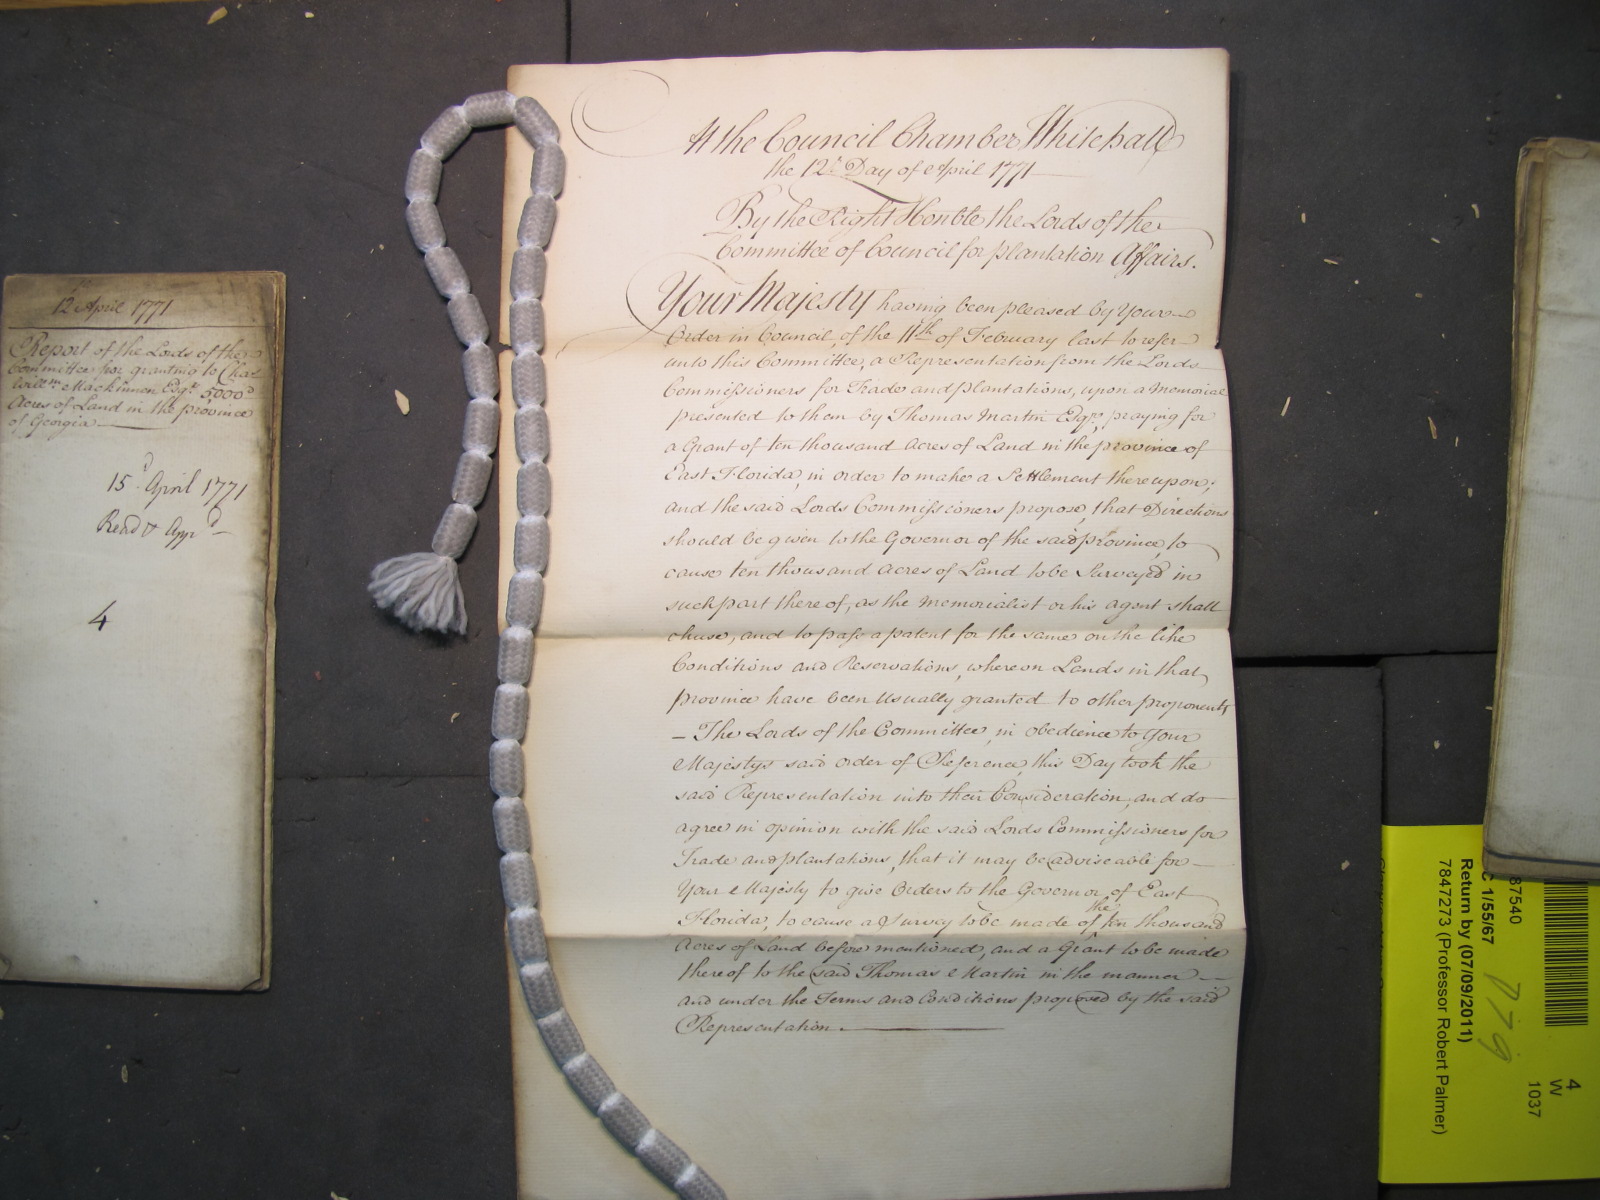 12 April 1771
Report of the Lords of the
Committee for granting to Chas
Willm Mackinnen Esqr. 5,000
Acres of Land in the province
of Georgia
15 April 1771
Read & Appd
4
At the Council Chamber Whitehall
the 12th Day of April 1771
By the Right Honble the Lords of the
Committee of Council for plantation Affairs.
Your Majesty having been pleased by Your
Order in Council, of the 11th of February last to refer
unto this Committee, a Representation from the Lords
Commissioners for Trade and plantations, upon a Memorial
presented to them by Thomas Martin Esqr., praying for
a Grant of ten thousand acres of Land in the province of
East Florida, in order to make a Settlement thereupon;
and the said Lords Commissioners propose, that Directions
should be given to the Governor of the said province, to
cause ten thousand acres of Land to be Surveyed in
such part thereof, as the Memorialist or his agent shall
chuse, and to pass a patent for the same on the like
Conditions and Reservations, whereon Lands in that
province have been usually granted to other proponents
— The Lords of the Committee, in obedience to Your
Majestys said order of Reference, this Day took the
said Representation into their Consideration, and do
agree in opinion with the said Lords Commissioners for
Trade and plantations, that it may be adviseable for
Your Majesty to give Orders to the Governor of East
Florida, to cause a Survey to be made of the ten thousand
Acres of Land before mentioned, and a Grant to be made
thereof to the said Thomas Martin in the manner
and under the Terms and Conditions proposed by the said
Representation.
87540
C 1/55/67
Return by (07/09/2011)
7847273 (Professor Robert Palmer)
4
W
1037